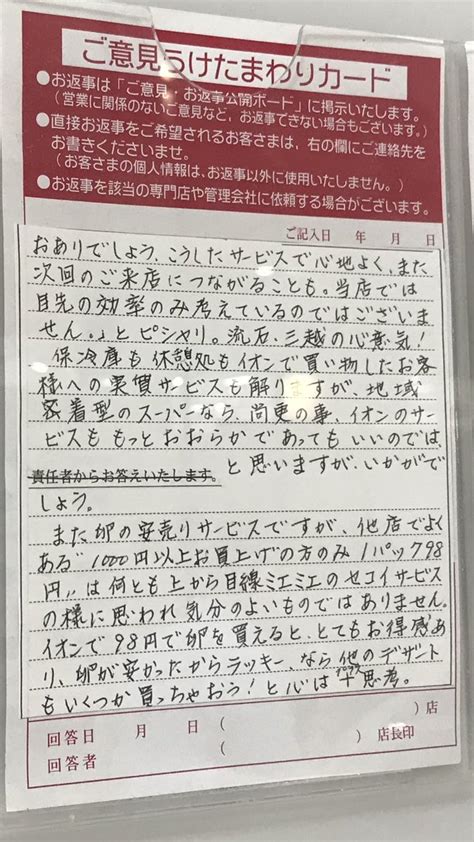 ご意見うけたまわりカード
●お返事は「ご意見・お返事公開ボード」に掲示いたします。
（営業に関係のないご意見など、お返事できない場合もございます。）
●直接お返事をご希望されるお客さまは、右の欄にご連絡先を
お書きくださいませ。
（お客さまの個人情報は、お返事以外に使用いたしません。）
●お返事を該当の専門店や管理会社に依頼する場合がございます。
ご記入日 年 月 日
おありでしょう、こうしたサービスで心地よく、また
次回のご来店につながることも。当店では
目先の効率のみ考えているのではございま
せん。」とピシャリ。流石、三越の心意気！
保冷庫も休憩処もイオンで買い物したお客
様への実質サービスも解りますが、地域
密着型のスーパーなら、尚更の事、イオンのサー
ビスももっとおおらかであってもいいのでは、
責任者からお答えいたします。 と思いますが、いかがで
しょう。
また卵の安売りサービスですが、他店でよく
ある〝1000円以上お買上げの方のみ1パック98
円〟は何とも上から目線ミエミエのセコイサービス
の様に思われ気分のよいものではありません。
イオンで98円で卵を買えると、とてもお得感あ
り、卵が安かったからラッキー、なら他のデザート
もいくつか買っちゃおう！と心は＋思考。
プラス
（ ）店
回答日 月 日
（ ）店長印
回答者